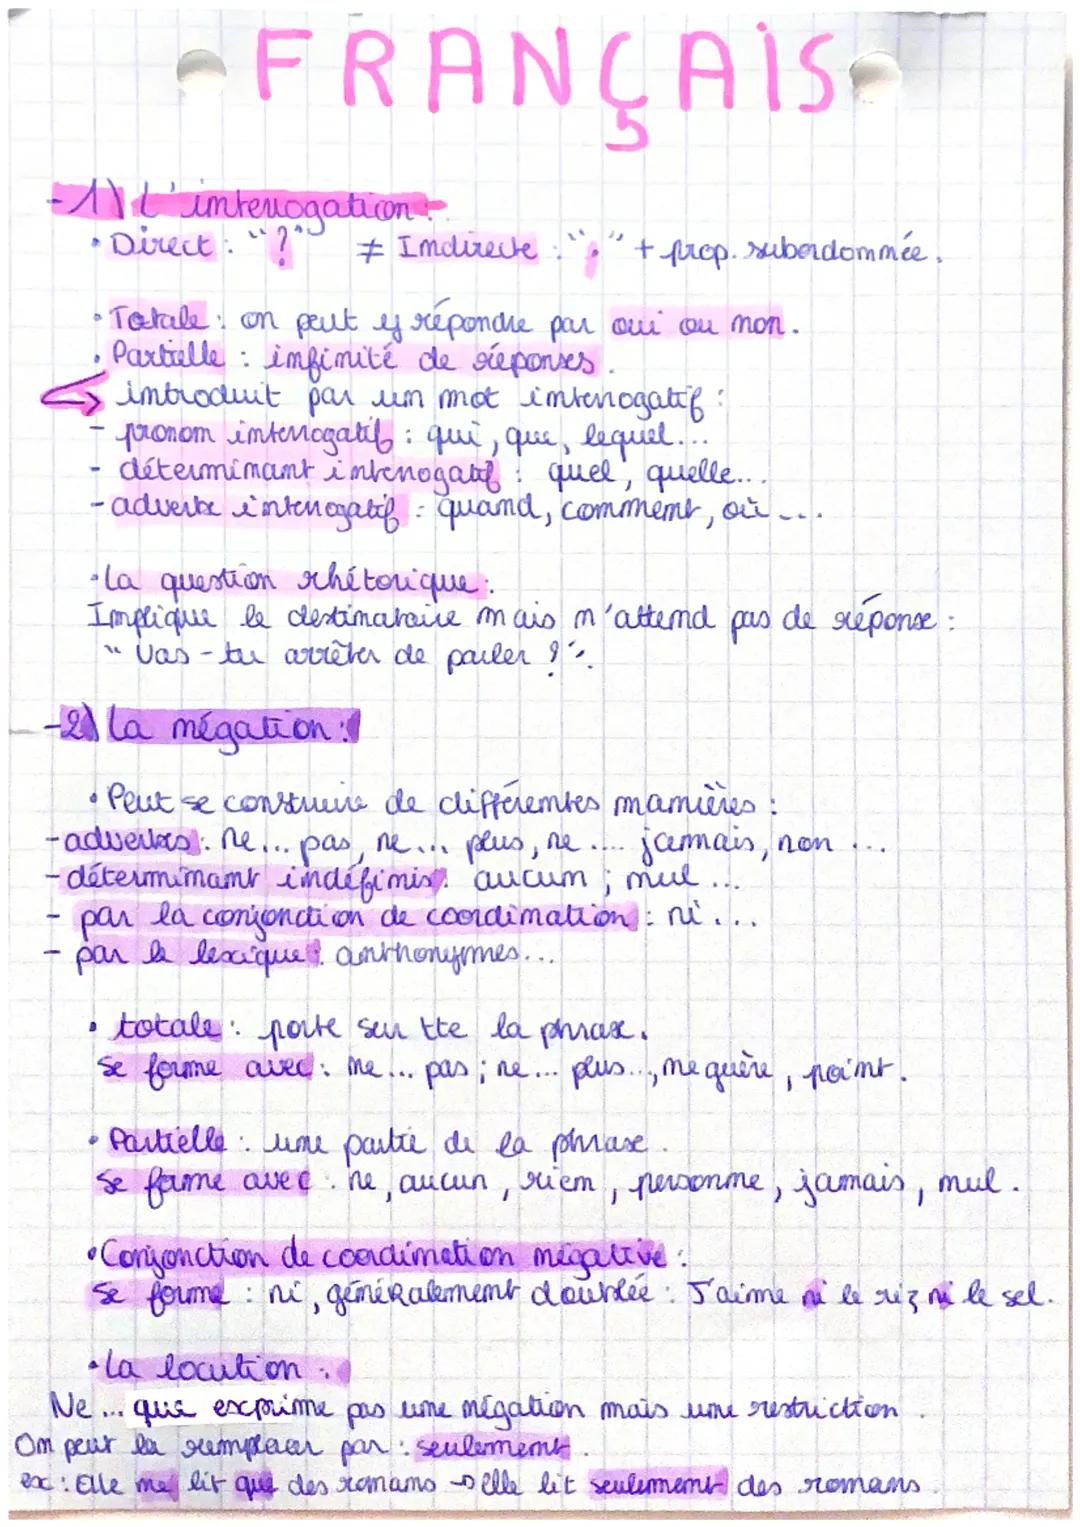 FRANÇAIS
-1) L'interrogation :
• Direct : "?" ≠ Indirecte : "." + prop. subordonnée.
• Totale : on peut y répondre par oui ou non.
• Partielle : infinité de réponses.
introduit par un mot interrogatif :
- pronom interrogatif : qui, que, lequel...
- déterminant interrogatif : quel, quelle...
- adverbe interrogatif : quand, comment, où ...
• La question rhétorique :
Implique le destinataire mais n'attend pas de réponse :
" Vas-tu arrêter de parler ?".
-2) La négation :
• Peut se construire de différentes manières :
- adverbes : ne... pas, ne... plus, ne .... jamais, non ...
- déterminant indéfinis : aucun ; nul ...
- par la conjonction de coordination : ni ...
- par le lexique : anthonymes...
• totale : porte sur tte la phrase.
Se forme avec : ne... pas ; ne... plus..., ne guère, point.
• Partielle : une partie de la phrase.
Se forme avec : ne, aucun, rien, personne, jamais, nul.
• Conjonction de coordination négative :
Se forme : ni, généralement doublée : J'aime ni le riz ni le sel.
• La locution :
Ne ... que exprime pas une négation mais une restriction.
On peut la remplacer par : seulement.
ex : Elle ne lit que des romans → elle lit seulement des romans.